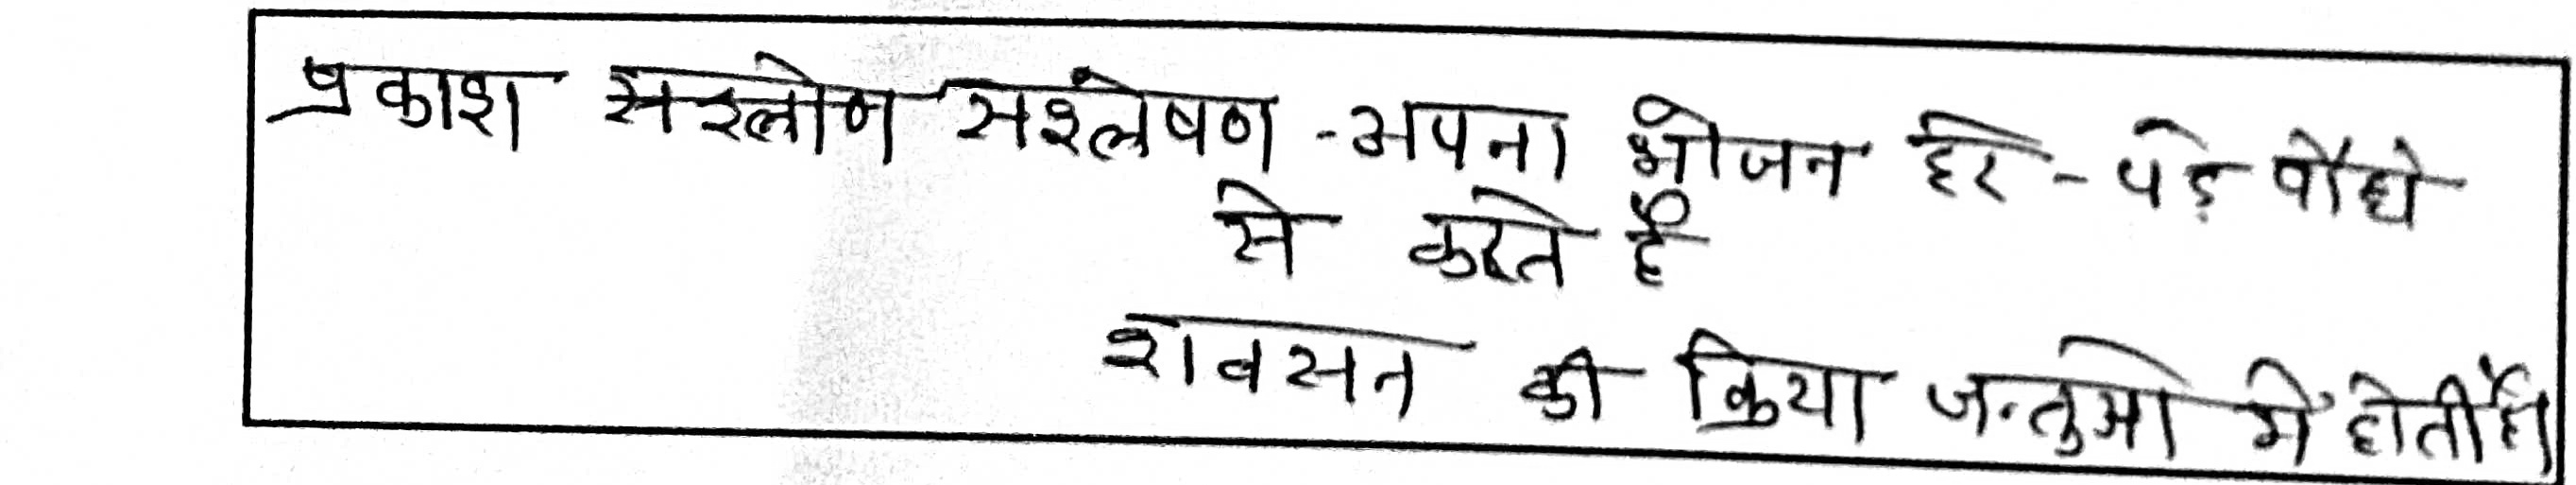 प्रकाश सश्लोण सश्लेषण - अपना भोजन हरे - पेड़ पौधे
से करते हैं
शवसन की क्रिया जन्तुओ में होती है।